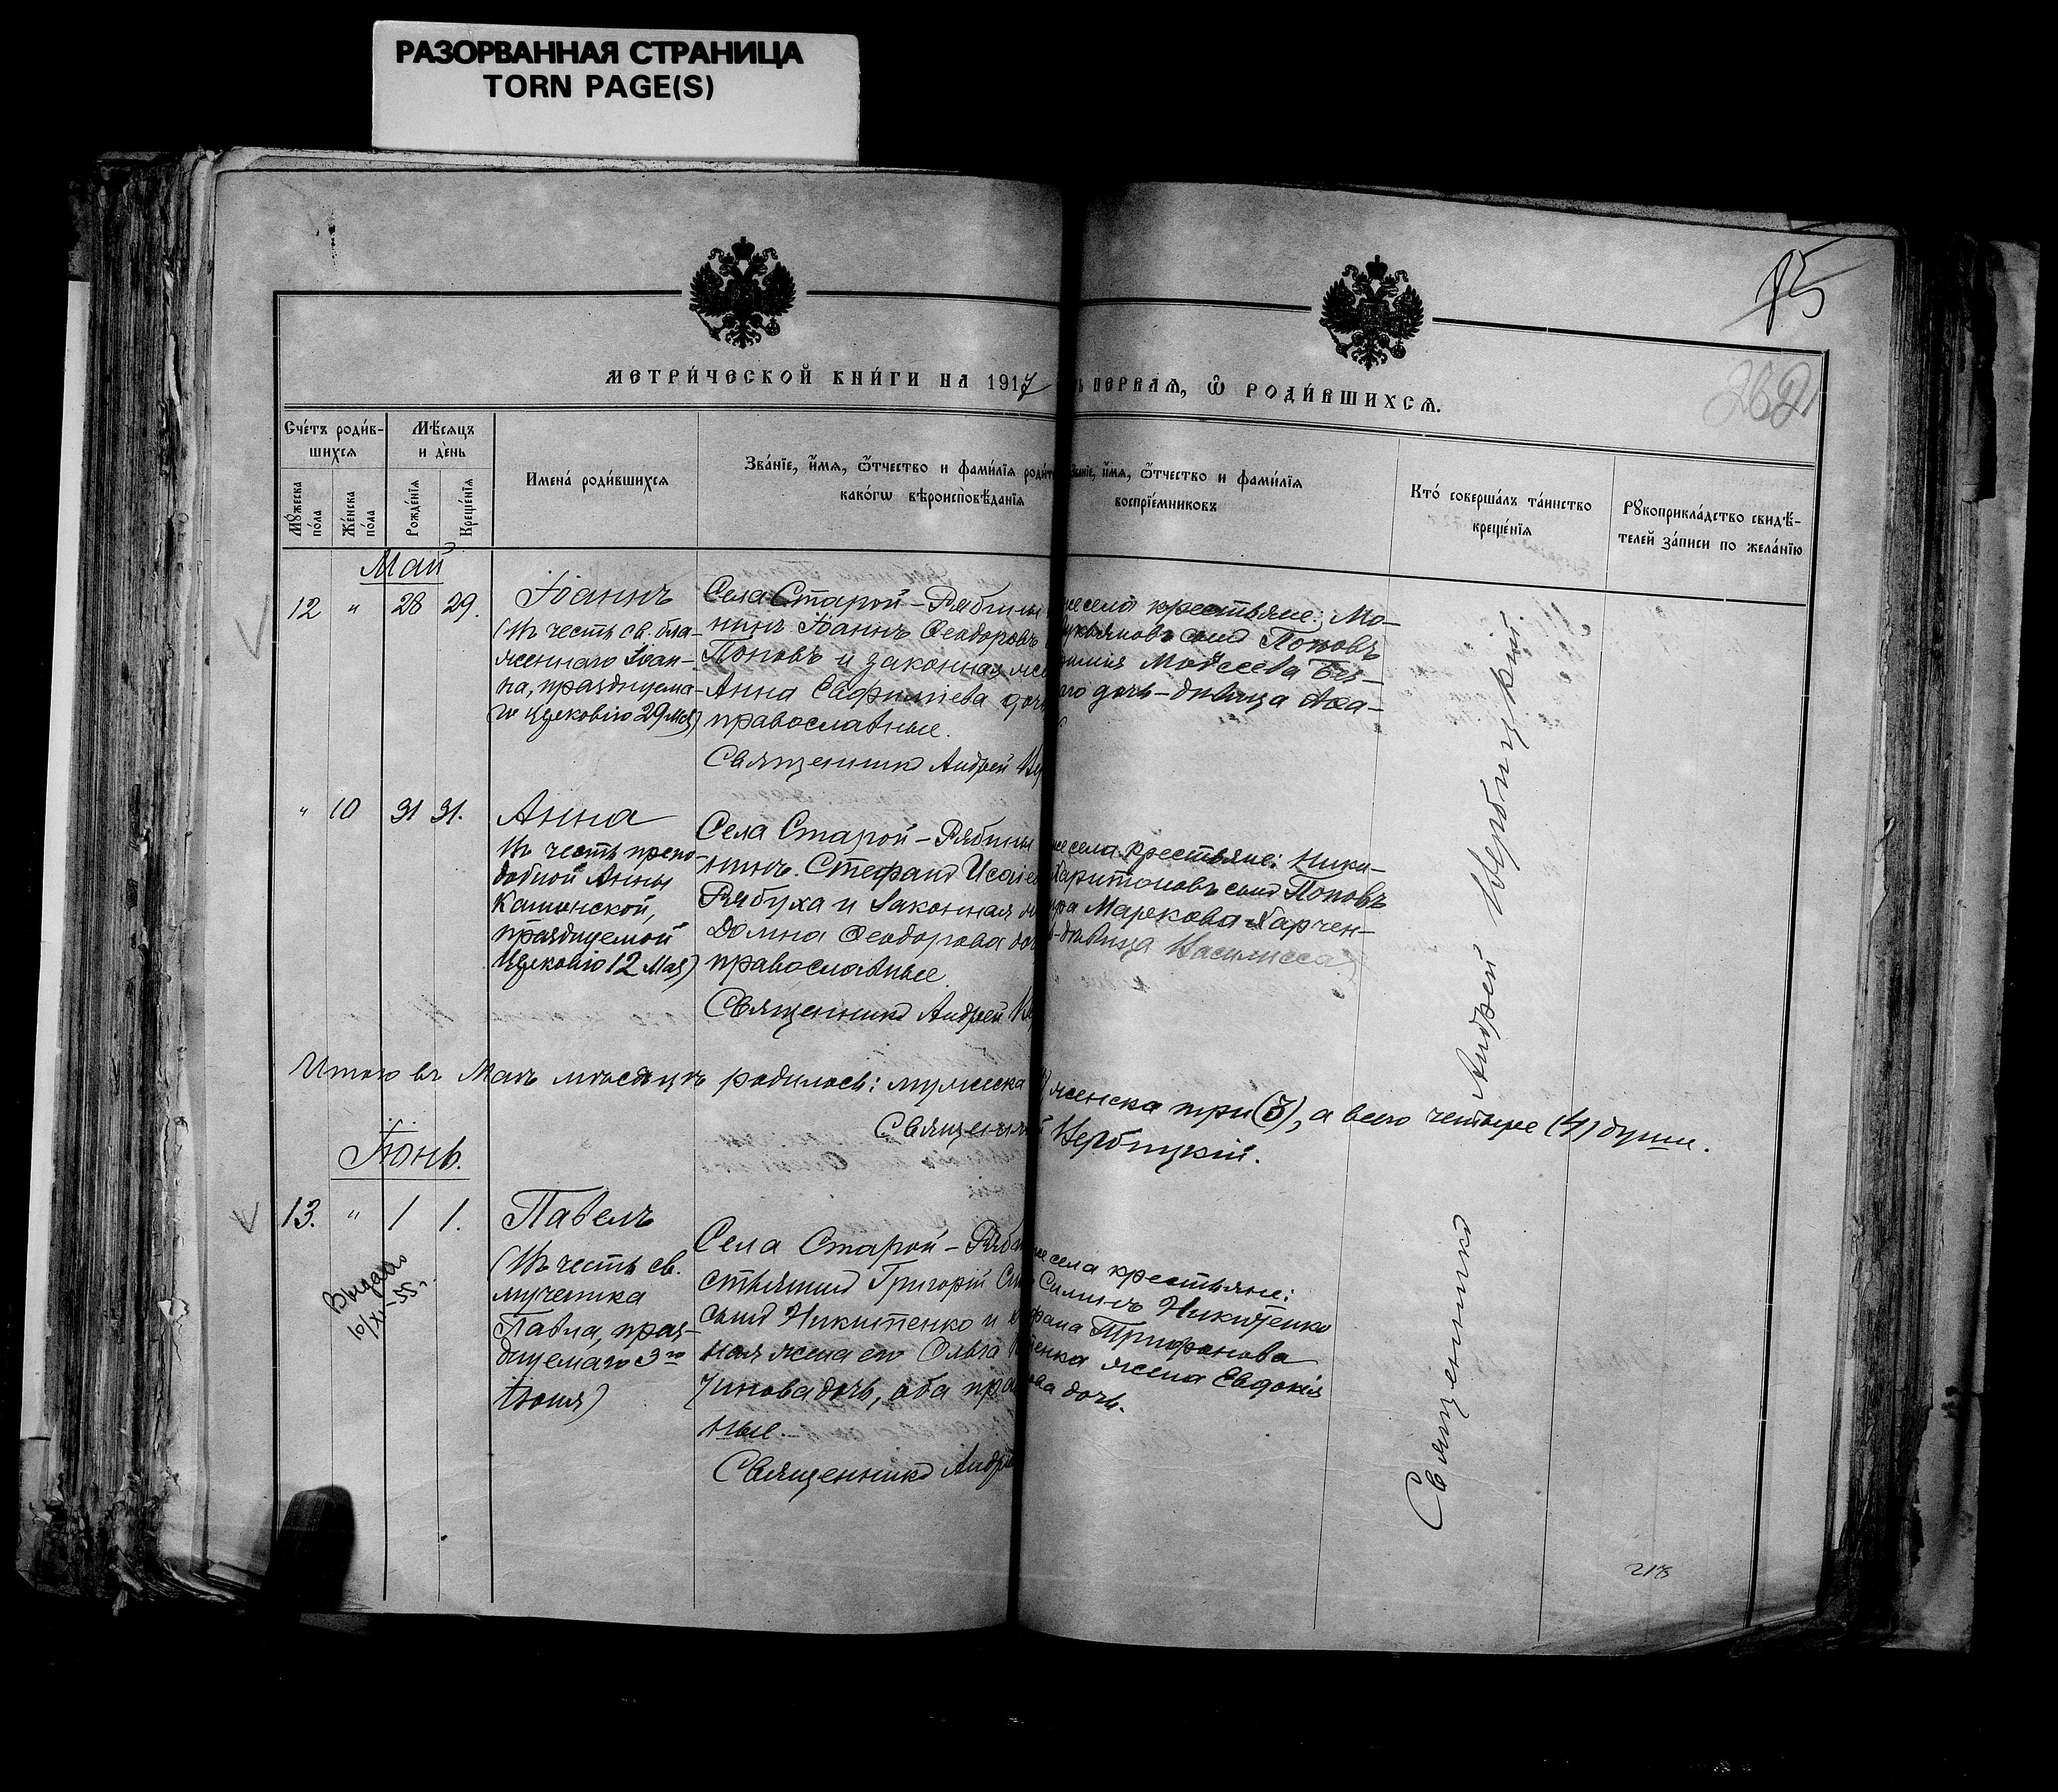 РАЗОРВАННАЯ СТРАНИЦА
TORN PAGE(S)
85
МЕТРИ́ЧЕСКОЙ КНИ́ГИ НА 1917
ПЕРВАЯ, Ѿ РОДИ́ВШИХСЯ.
Сче́тъ роди́в-
шихся
Мѣ́сяцъ
и де́нь
Му́жеска по́ла
Же́нска по́ла
Рожде́нія
Креще́нія
Имена́ роди́вшихся
Зва́ніе, и́мя, ѻ҆́тчество и фами́лія роди
како́гѡ вѣроисповѣ́данія
и́мя, ѻ҆́тчество и фами́лія
воспріе́мниковъ
Кто́ соверша́лъ та́инство
креще́нія
Рукоприкла́дство свидѣ́-
телей за́писи по жела́нію
Май
12 " 28 29.
Іоаннъ
(въ честь св. бла-
женнаго Іоан-
на, празднуема-
го Церковію 29 Мая)
Села Старой-Рябины
нинъ Іоаннъ Ѳеодоровъ
Поповъ и законная же
Анна Евфиміева доч
православные.
Священникъ Андрей Ве
же села крестьяне: Мо-
Лукьяновъ сынъ Поповъ
Моѵсеева Без-
го дочь-дѣвица Ага-
" 10 31 31.
Анна
Въ честь препо-
добной Анны
Кашинской,
празднуемой
Церковію 12 Мая)
Села Старой-Рябины
нинъ Стефанъ Исаіев
Рябуха и законная ж
Домна Ѳеодорова до
православные.
Священникъ Андрей Ве
же села крестьяне: Ники-
Харитоновъ сынъ Поповъ
ра Маркова Харчен-
дѣвица Василисса
Итого въ Маѣ мѣсяцѣ родилось: мужеска
женска три (3), а всего четыре (4) души.
Священни
й Вербицкій.
Іюнь.
13. " 1 1.
Выдано
10/XI-55г.
Павелъ
(Въ честь св.
мученика
Павла, праз-
днуемаго 3го
Іюня)
Села Старой-Ряб
стьянинъ Григорій Си
сынъ Никитенко и
ная жена его Ольга
дочь, оба пра
ные.
Священникъ Андре
же села крестьяне:
Силинъ Никитенко
Трифонова
енка жена Евдокія
ова дочь.
Священникъ Андрей Вербицкій.
218